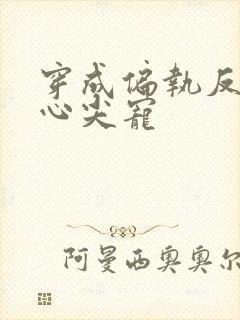 穿成偏執反
心尖寵
阿曼西奧奧尔